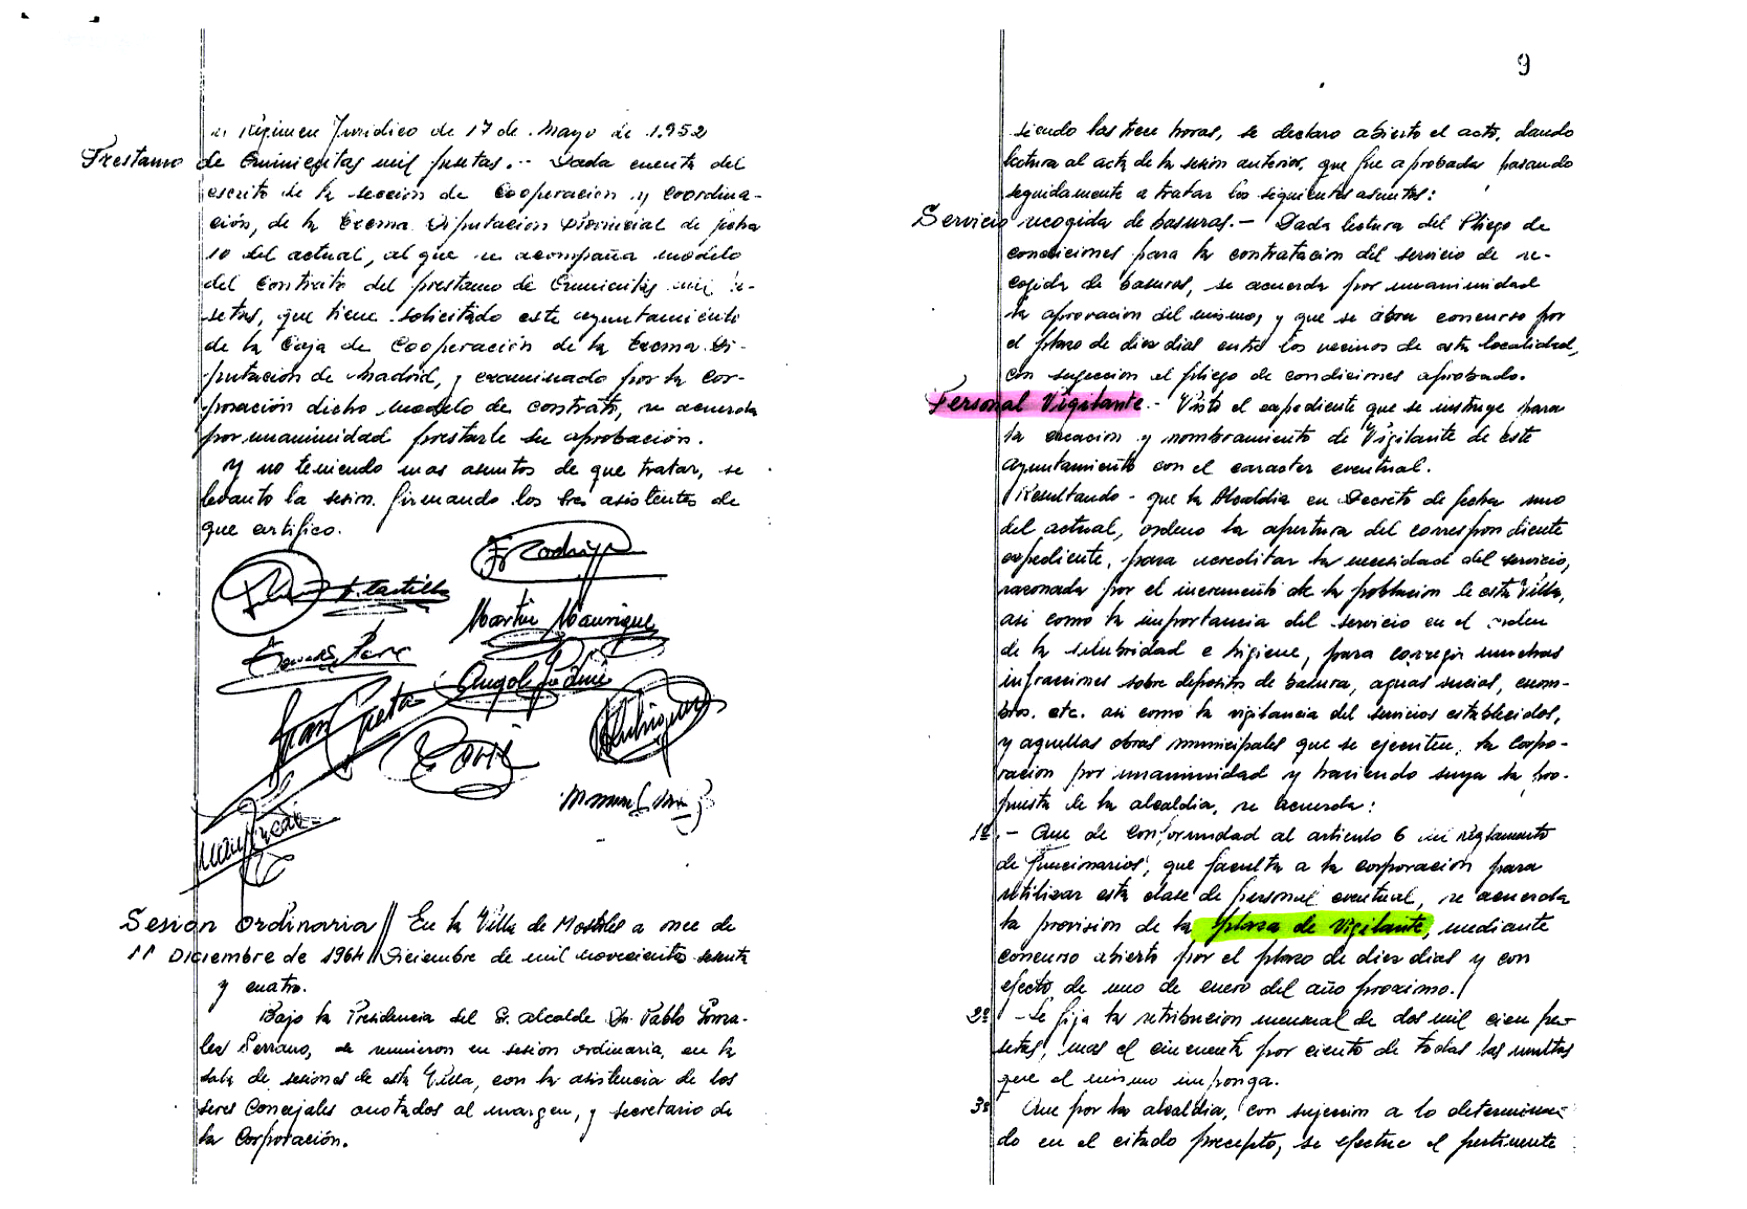 Regimen Juridico de 17 de Mayo de 1.952
Prestamo de Quinientas mil pesetas.-- Dada cuenta del
escrito de la seccion de Cooperacion y Coordina-
ción, de la Excma Diputacion Provincial de fecha
10 del actual, al que se acompaña modelo
del Contrato del prestamo de Quinientas mil pe-
setas, que tiene solicitado este ayuntamiento
de la Caja de Cooperación de la Excma. Di-
putacion de Madrid, y examinado por la Cor-
poración dicho modelo de contrato, se acuerda
por unanimidad prestarle su aprobación.
Y no teniendo mas asuntos de que tratar, se
levanto la sesion. firmando los Sres asistentes de
que certifico.
F Rodrig
P. Castillo
Martin Manrique
Angel
Juan
Sesion Ordinaria // En la Villa de Mostoles a once de
11 Diciembre de 1964 // Diciembre de mil novecientos sesenta
y cuatro.
Bajo la Presidencia del Sr. alcalde Dn. Pablo Gonza-
lez Serrano, se reunieron en sesion ordinaria, en la
sala de sesiones de esta Villa, con la asistencia de los
seres Concejales anotados al margen, y secretario de
la Corporación.
9
siendo las trece horas, se declaro abierto el acto, dando
lectura al acta de la sesion anterior, que fue aprobada pasando
seguidamente a tratar los siguientes asuntos:
Servicio recogida de basuras.- Dada lectura del Pliego de
condiciones para la contratacion del servicio de re-
cogida de basuras, se acuerda por unanimidad
la aprovacion del mismo, y que se abra concurso por
el plazo de diez dias entre los vecinos de esta localidad,
con sujeccion al pliego de condiciones aprobado.
Personal Vigilante.- Visto el expediente que se instruye para
la creacion y nombramiento de Vigilante de este
ayuntamiento con el caracter eventual.
Resultando - que la Alcaldia en Decreto de fecha uno
del actual, ordeno la apertura del correspondiente
expediente, para acreditar la necesidad del servicio,
razonada por el incremento de la poblacion de esta Villa,
asi como la importancia del servicio en el orden
de la salubridad e higiene, para corregir muchas
infracciones sobre depositos de basura, aguas sucias, escom-
bros. etc. asi como la vigilancia del servicios establecidos,
y aquellas obras municipales que se ejecuten, la Corpo-
racion por unanimidad y haciendo suya la pro-
puesta de la alcaldia, se acuerda:
1º.- Que de conformidad al articulo 6 del reglamento
de funcionarios, que faculta a la corporacion para
utilizar esta clase de personal eventual, se acuerda
la provision de la plaza de Vigilante, mediante
concurso abierto por el plazo de diez dias y con
efecto de uno de enero del año proximo.
2º - Se fija la retribucion mensual de dos mil cien pe-
setas, mas el cincuenta por ciento de todas las multas
que el mismo imponga.
3º Que por la alcaldia, con sujecion a lo determina-
do en el citado precepto, se efectue el pertinente